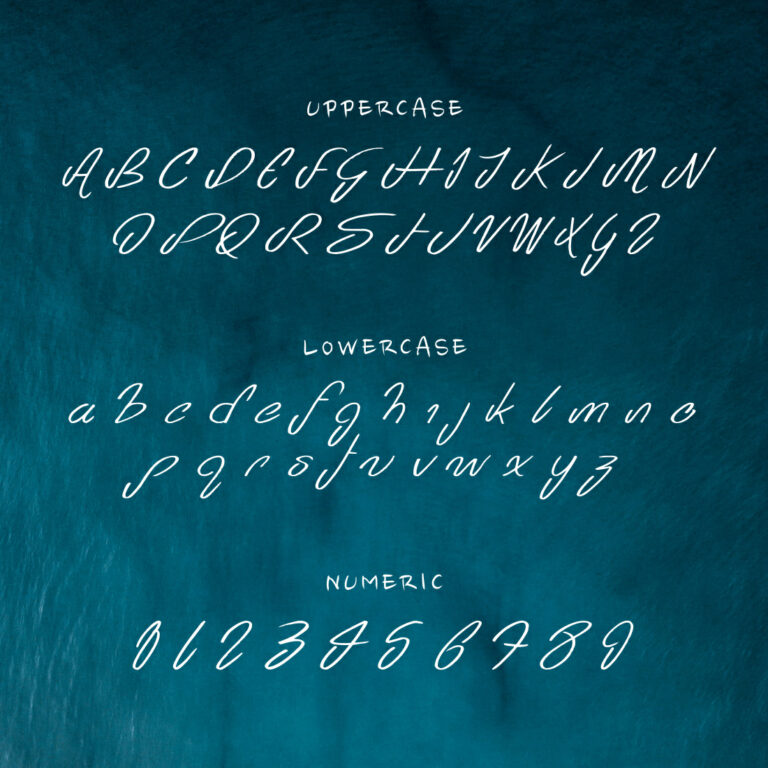 UPPERCASE
ABCDEFGHIJKLMN
OPQRSTUVWXYZ
LOWERCASE
abcdefghijklmno
pqrstuvwxyz
NUMERIC
0123456789